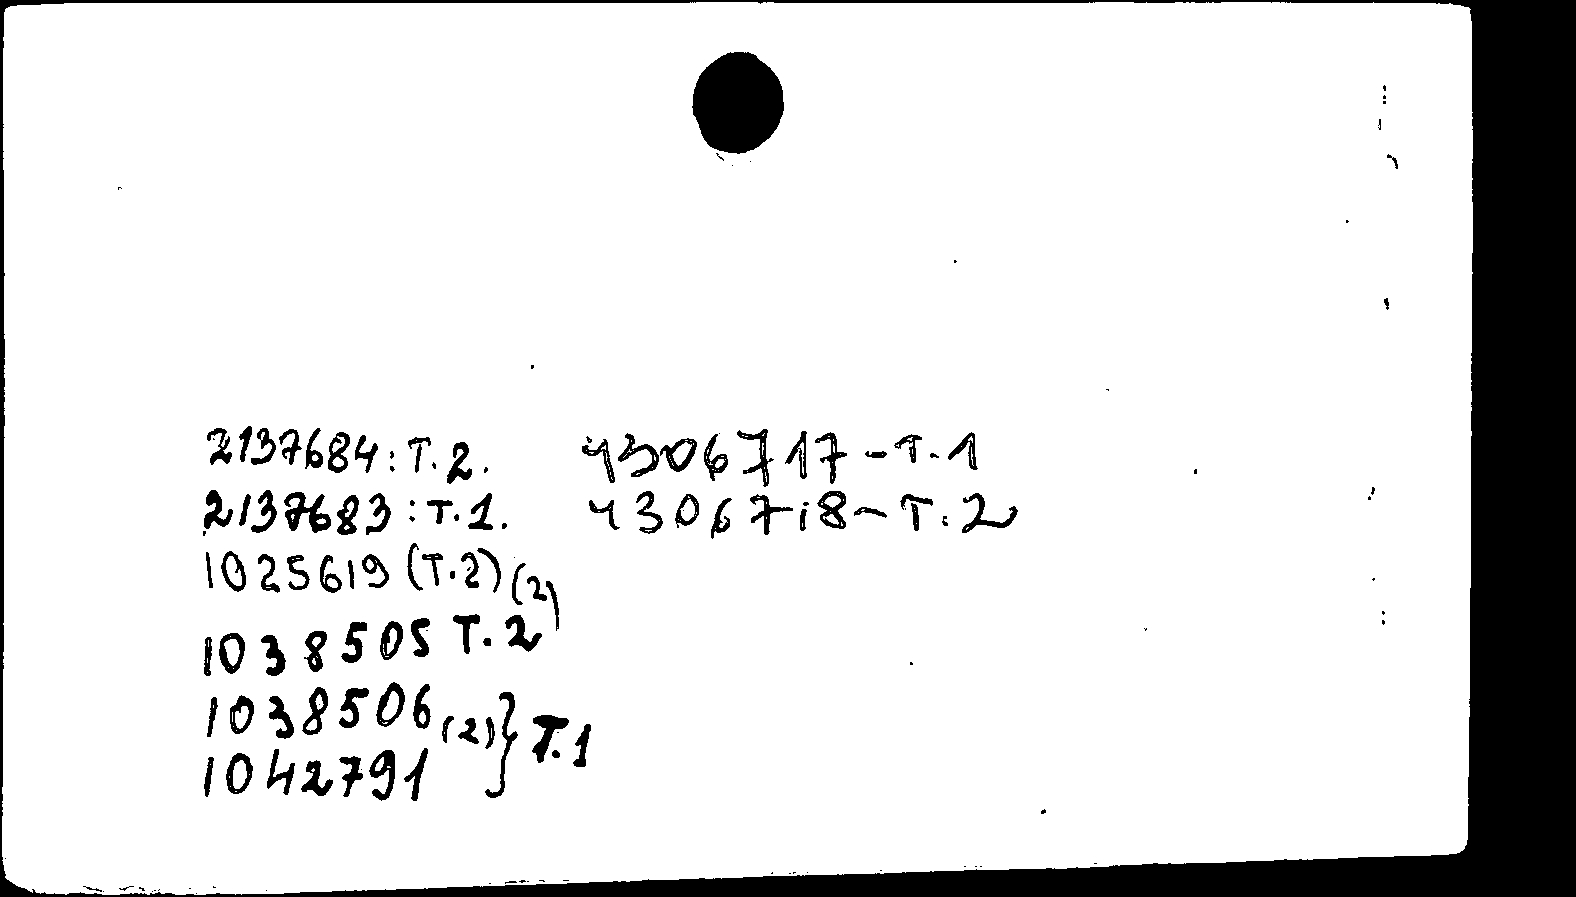 2137684: T. 2.
2137683: T. 1.
1025619 (T. 2) (2)
1038505 T. 2
1038506 (2) } T. 1
1042791
4306717 - T. 1
4306718 - T. 2